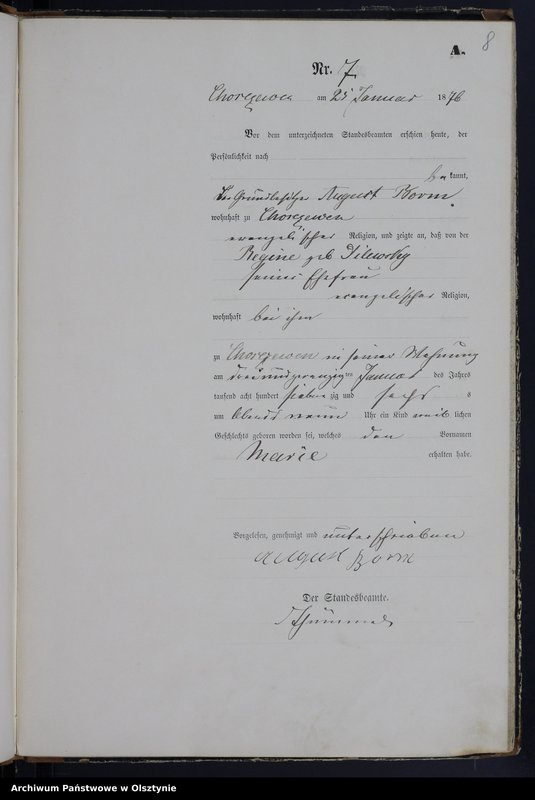 A. 8
Nr. 7
Chorczewen am 25 Januar 1876
Vor dem unterzeichneten Standesbeamten erschien heute, der
Persönlichkeit nach
be kannt,
der Grundbesitzer August Borm
wohnhaft zu Chorczewen
evangelischer Religion, und zeigte an, daß von der
Regine geb
seiner Ehefrau
evangelischer Religion,
wohnhaft bei ihm
zu Chorczewen in seiner Wohnung
am dreiundzwanzigten Januar des Jahres
tausend acht hundert sieben zig und sechs s
um Abends neun Uhr ein Kind weib lichen
Geschlechts geboren worden sei, welches den Vornamen
Marie erhalten habe.
Vorgelesen, genehmigt und unterschrieben
August Borm
Der Standesbeamte.
Archiwum Państwowe w Olsztynie